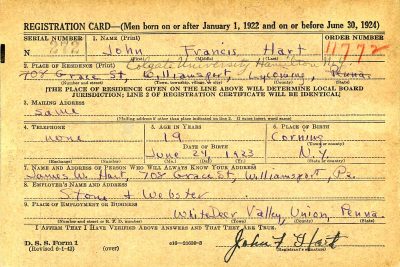 REGISTRATION CARD—(Men born on or after January 1, 1922 and on or before June 30, 1924)
SERIAL NUMBER 1. NAME (Print) ORDER NUMBER
N 272 John Francis Hart 11772
(First) (Middle) (Last)
2. PLACE OF RESIDENCE (Print) Colgate University Hamilton N.Y.
708 Grace St, Williamsport, Lycoming, Penna.
(Number and street) (Town, township, village, or city) (County) (State)
[THE PLACE OF RESIDENCE GIVEN ON THE LINE ABOVE WILL DETERMINE LOCAL BOARD
JURISDICTION; LINE 2 OF REGISTRATION CERTIFICATE WILL BE IDENTICAL]
3. MAILING ADDRESS
Same
(Mailing address if other than place indicated on line 2. If same insert word same)
4. TELEPHONE 5. AGE IN YEARS 6. PLACE OF BIRTH
none 19 Corning
DATE OF BIRTH (Town or county)
June 24 1923 N.Y.
(Exchange) (Number) (Mo.) (Day) (Yr.) (State or country)
7. NAME AND ADDRESS OF PERSON WHO WILL ALWAYS KNOW YOUR ADDRESS
James W. Hart, 708 Grace St, Williamsport, Pa.
8. EMPLOYER'S NAME AND ADDRESS
Stone & Webster
9. PLACE OF EMPLOYMENT OR BUSINESS
White Deer Valley, Union, Penna.
(Number and street or R. F. D. number) (Town) (County) (State)
I AFFIRM THAT I HAVE VERIFIED ABOVE ANSWERS AND THAT THEY ARE TRUE.
D. S. S. Form 1 (over) John F Hart
(Revised 6-1-42) (Registrant's signature)